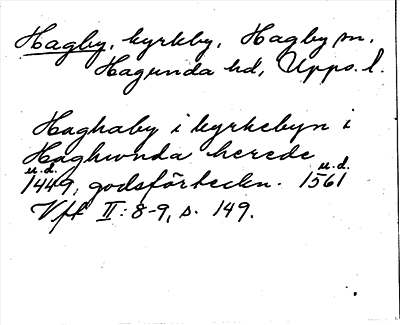 Hagby, kyrkby, Hagby sn.
Hagunda hd, Upps. l.
Haghaby i kyrkebyn i
Haghunda herede
u.d. u.d.
1449, godsförteckn. 1561
Vfr II: 8-9, s. 149.